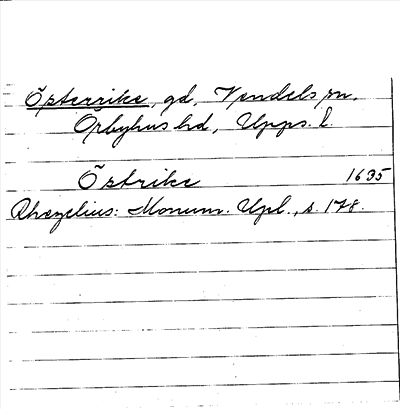 Österrike, gd, Vendels sn.
Örbyhus hd, Upps. l.
Östrike 1635
Rhezelius: Monum. Upl., s. 178.